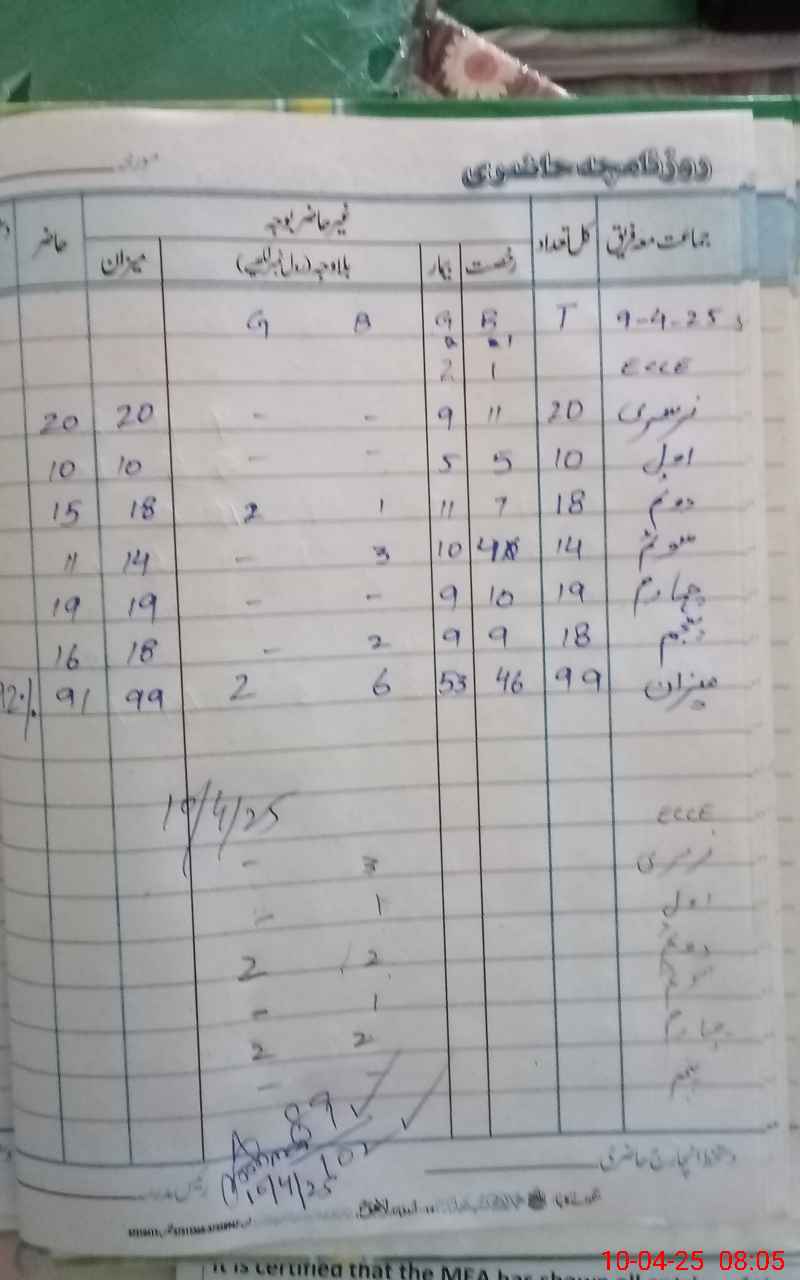 روزنامچہ حاضری
جماعت معہ فریق کل تعداد غیر حاضر بوجہ حاضر
رخصت بیمار بلاوجہ (رول نمبر لکھیے) میزان
9-4-25 T B G B G
ECCE 1 2
نرسری 20 11 9 - - 20 20
اول 10 5 5 - - 10 10
دوئم 18 7 11 1 2 18 15
سوئم 14 4 10 3 - 14 11
چہارم 19 10 9 - - 19 19
پنجم 18 9 9 2 - 18 16
میزان 99 46 53 6 2 99 91
10/4/25
ECCE
نرسری 3 -
اول 1 -
دوئم 2 2
سوئم 1 -
چہارم 2 2
پنجم - -
89
102
10/4/25
دستخط انچارج حاضری
It is certified that the MEA has shown
10-04-25 08:05